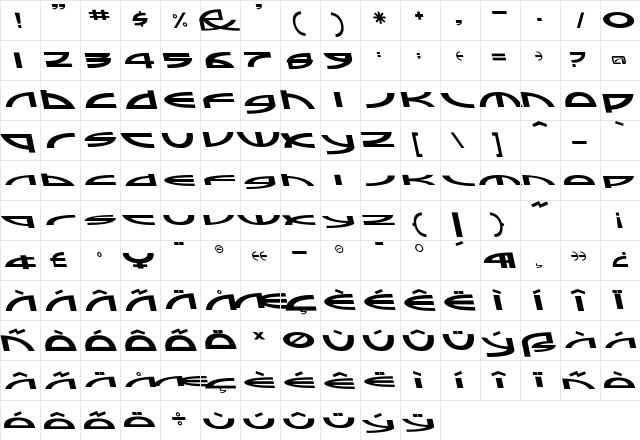 ! " # $ % & ' ( ) * + , - . / 0
1 2 3 4 5 6 7 8 9 : ; < = > ? @
A B C D E F G H I J K L M N O P
Q R S T U V W X Y Z [ \ ] ^ _ `
a b c d e f g h i j k l m n o p
q r s t u v w x y z { | } ~ ¡
¥ ¨ © « ® ¯ ° ´ ¶ ¸ » ¿
À Á Â Ã Ä Å Æ Ç È É Ê Ë Ì Í Î Ï
Ñ Ò Ó Ô Õ Ö × Ø Ù Ú Û Ü Ý ß à á
â ã ä å æ ç è é ê ë ì í î ï ñ ò
ó ô õ ö ÷ ù ú û ü ý ÿ